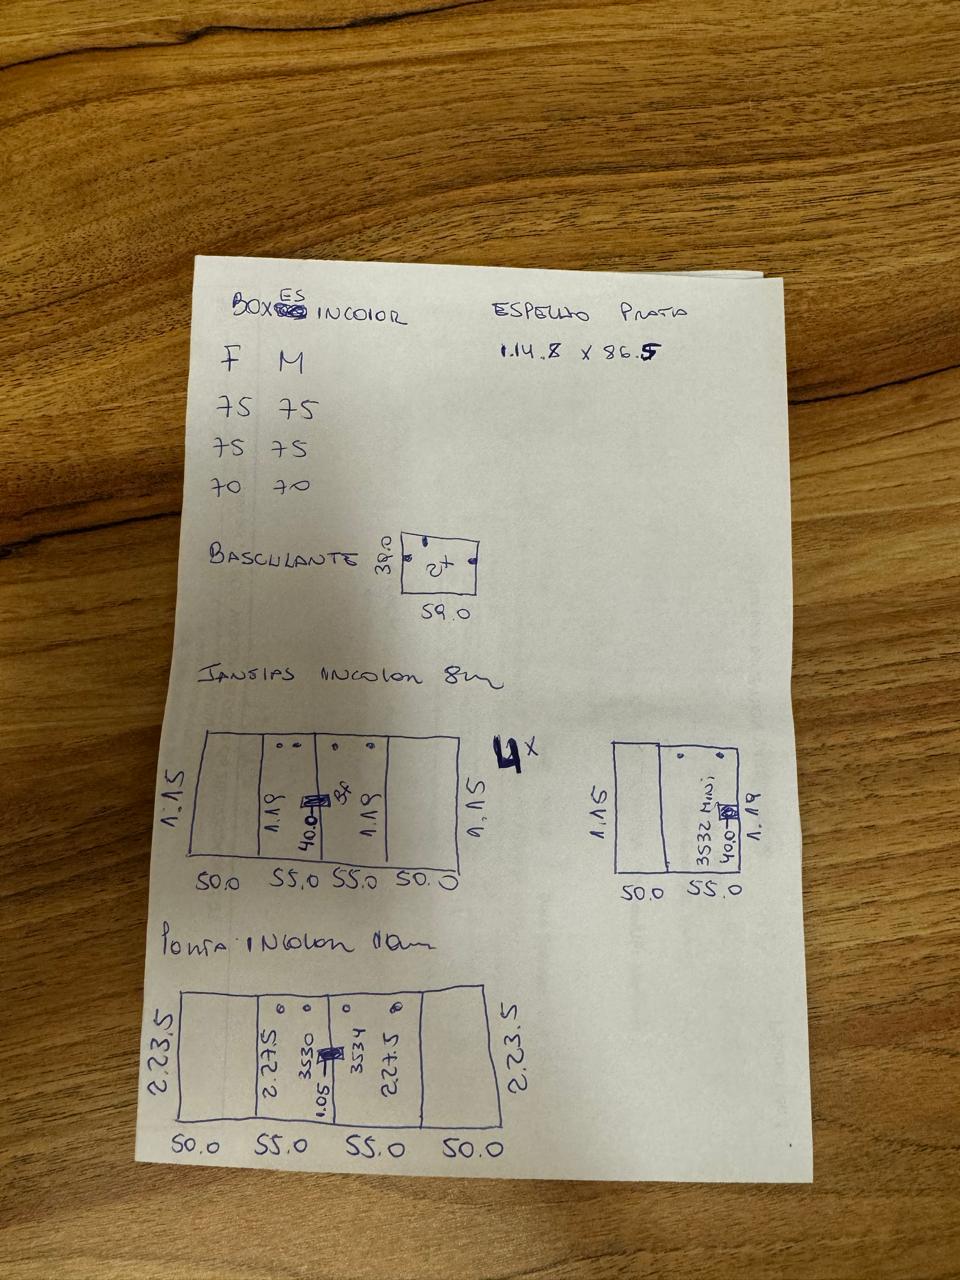 BOXES INCOLOR
F M
75 75
75 75
70 70
ESPELHO PRATA
1.14.8 x 86.5
BASCULANTE
39.0
2x
59.0
INCOLOR 8m
1.15
1.19
40.0
1.19
1.15
50.0 55.0 55.0 50.0
4x
1.15
3532 MINI
40.0
1.19
50.0 55.0
PORTA INCOLOR 10m
2.23.5
2.27.5
3530
1.05
3534
2.27.5
2.23.5
50.0 55.0 55.0 50.0